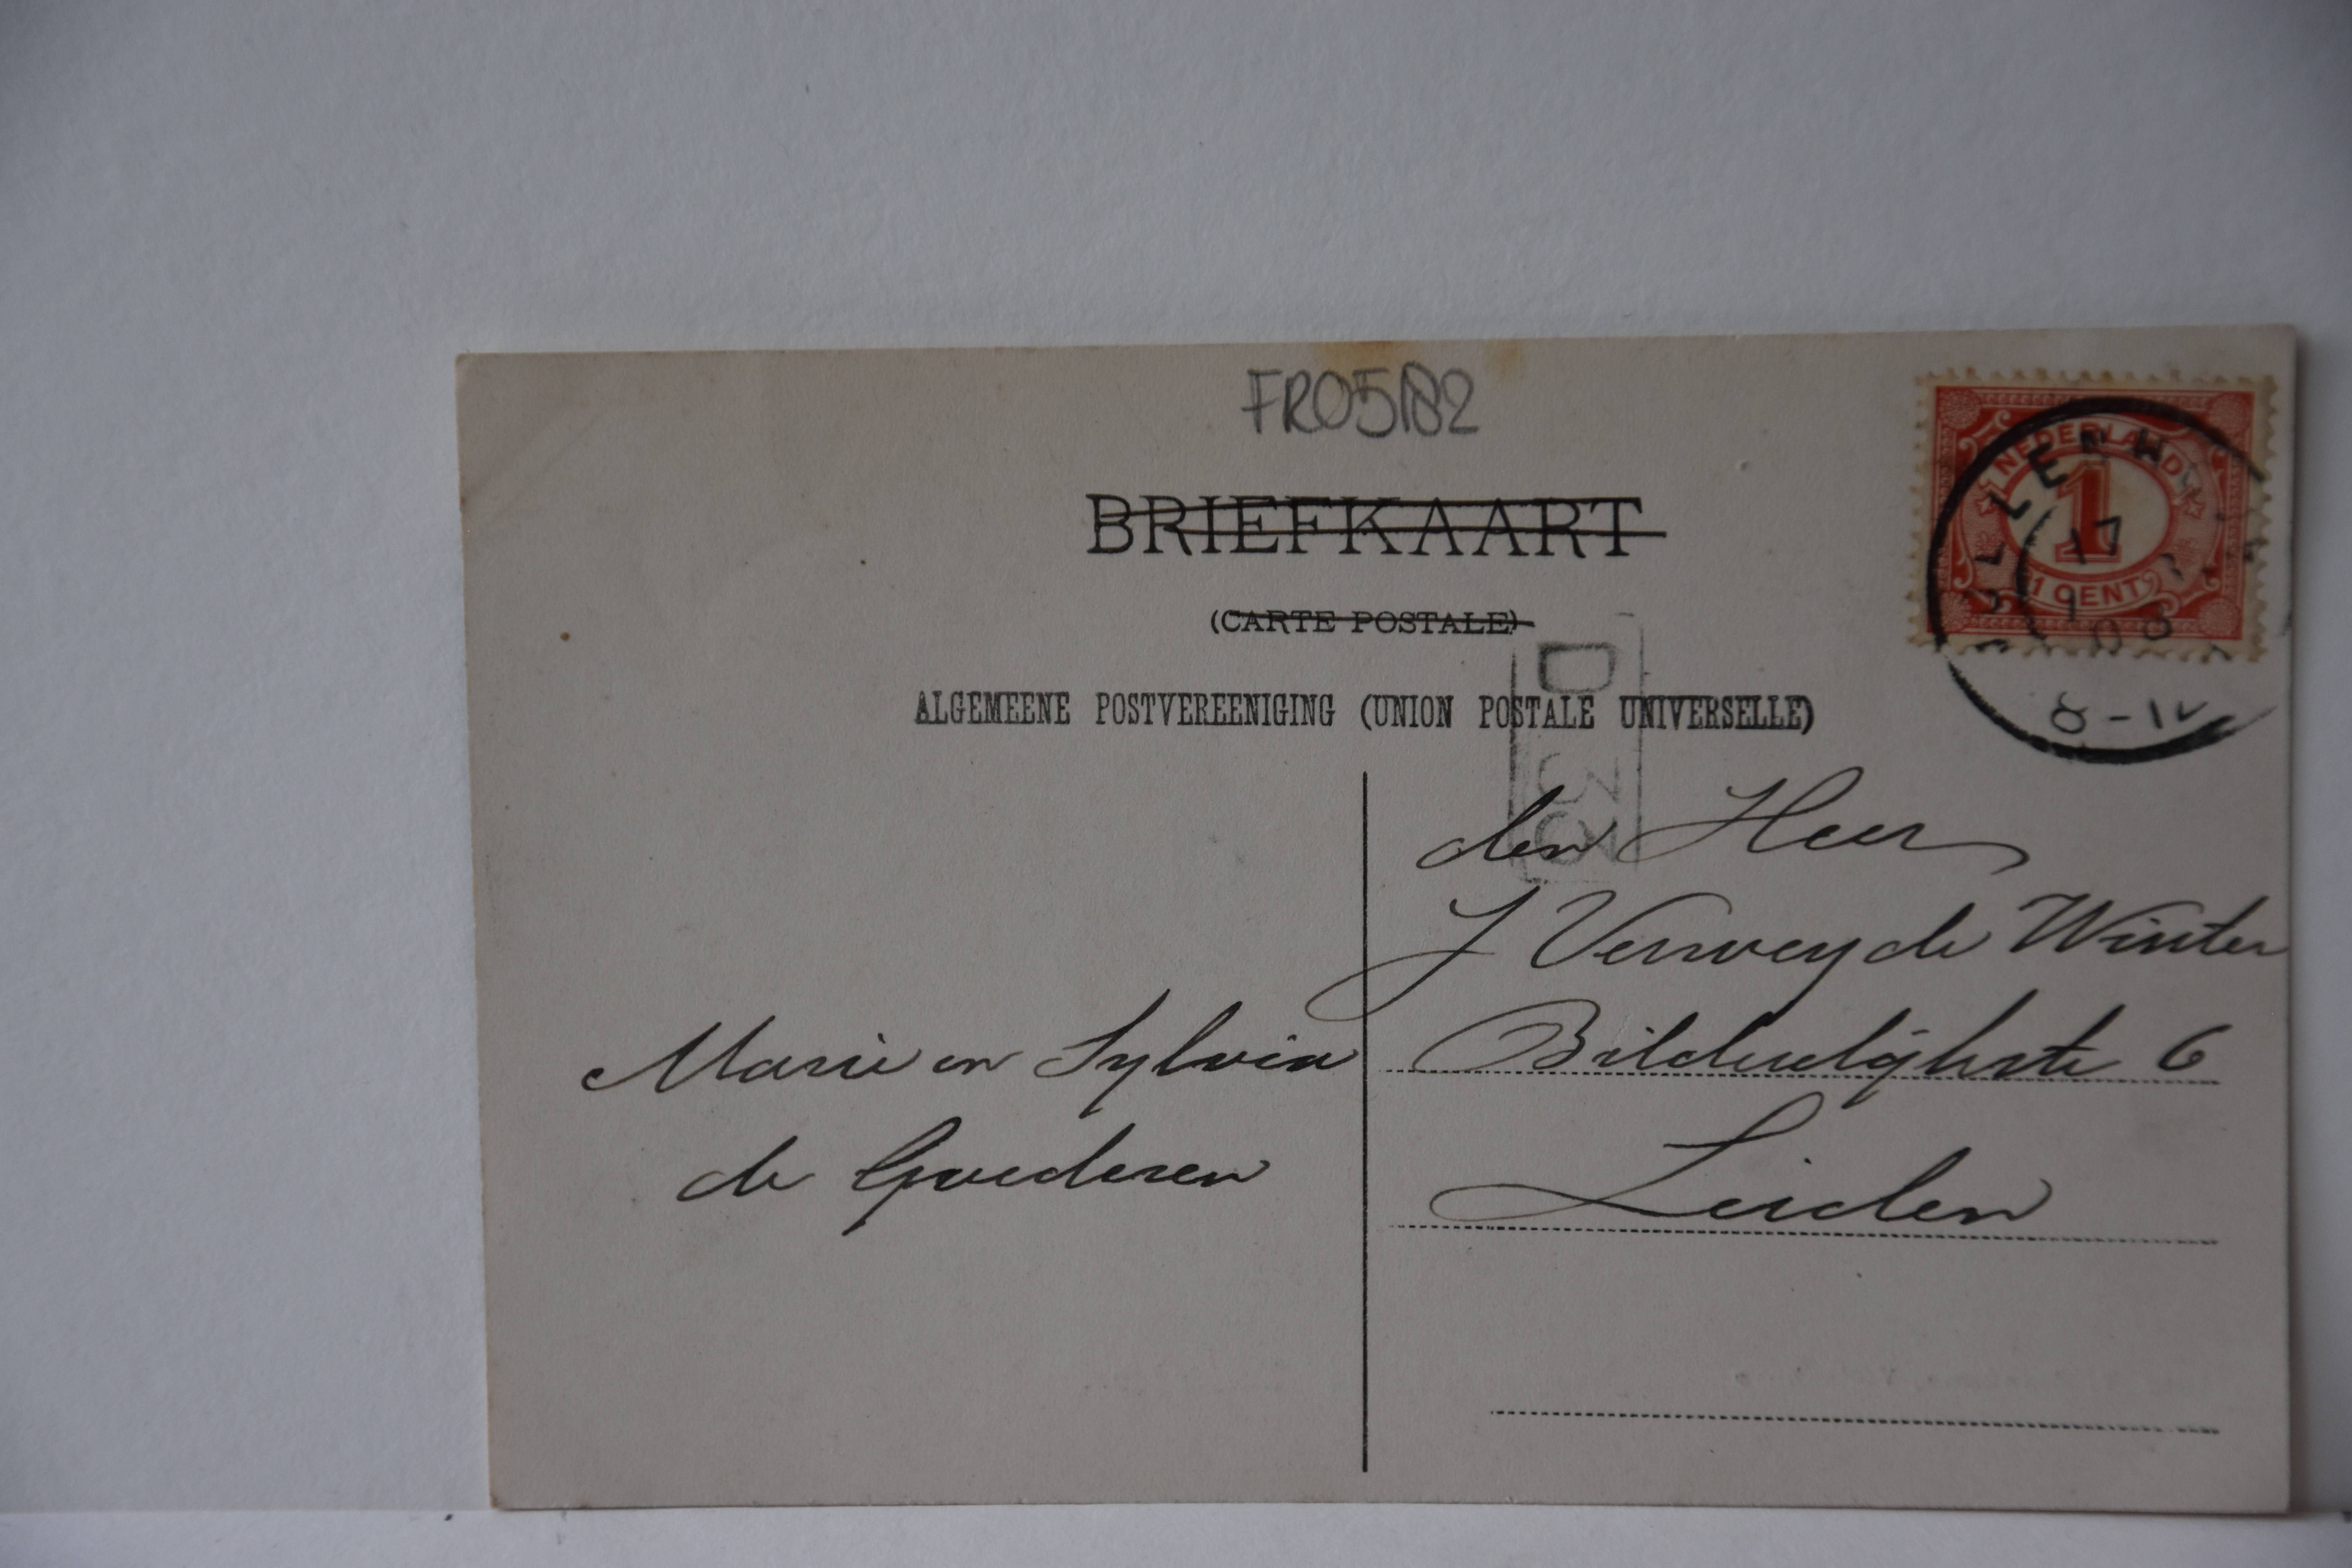 FR05182
BRIEFKAART
(CARTE POSTALE)
ALGEMEENE POSTVEREENIGING (UNION POSTALE UNIVERSELLE)
NEDERLAND
1
1 CENT
17
08
8-12
D
den Heer
J Verwey de Winter
Bilderdijkstr 6
Leiden
Marie en Sylvia
de Goederen